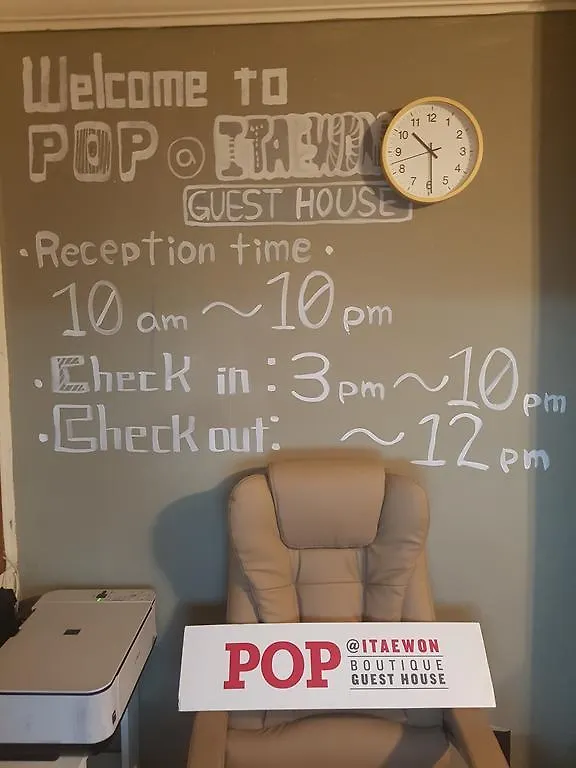 Welcome to
POP @ ITAEWON
GUEST HOUSE
11 12 1
10 2
9 3
8 4
7 6 5
• Reception time •
10 am ~ 10 pm
• Check in : 3 pm ~ 10 pm
• Check out: ~ 12 pm
POP @ITAEWON
BOUTIQUE
GUEST HOUSE